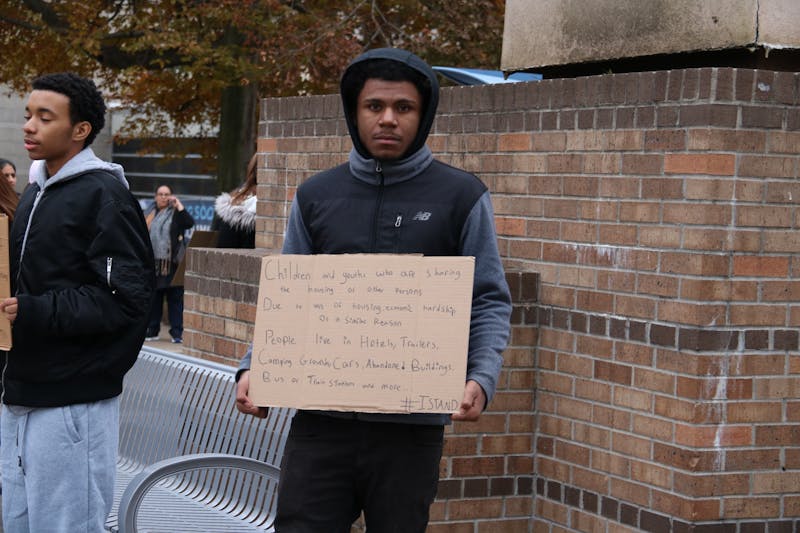 NB
Children and youths who are sharing
the housing of other persons
Due to loss of housing, economic hardship
Or a similar Reason
People live in Hotels, Trailers,
Camping Grounds, Cars, Abandoned Buildings.
Bus or Train stations and more...
# ISTAND